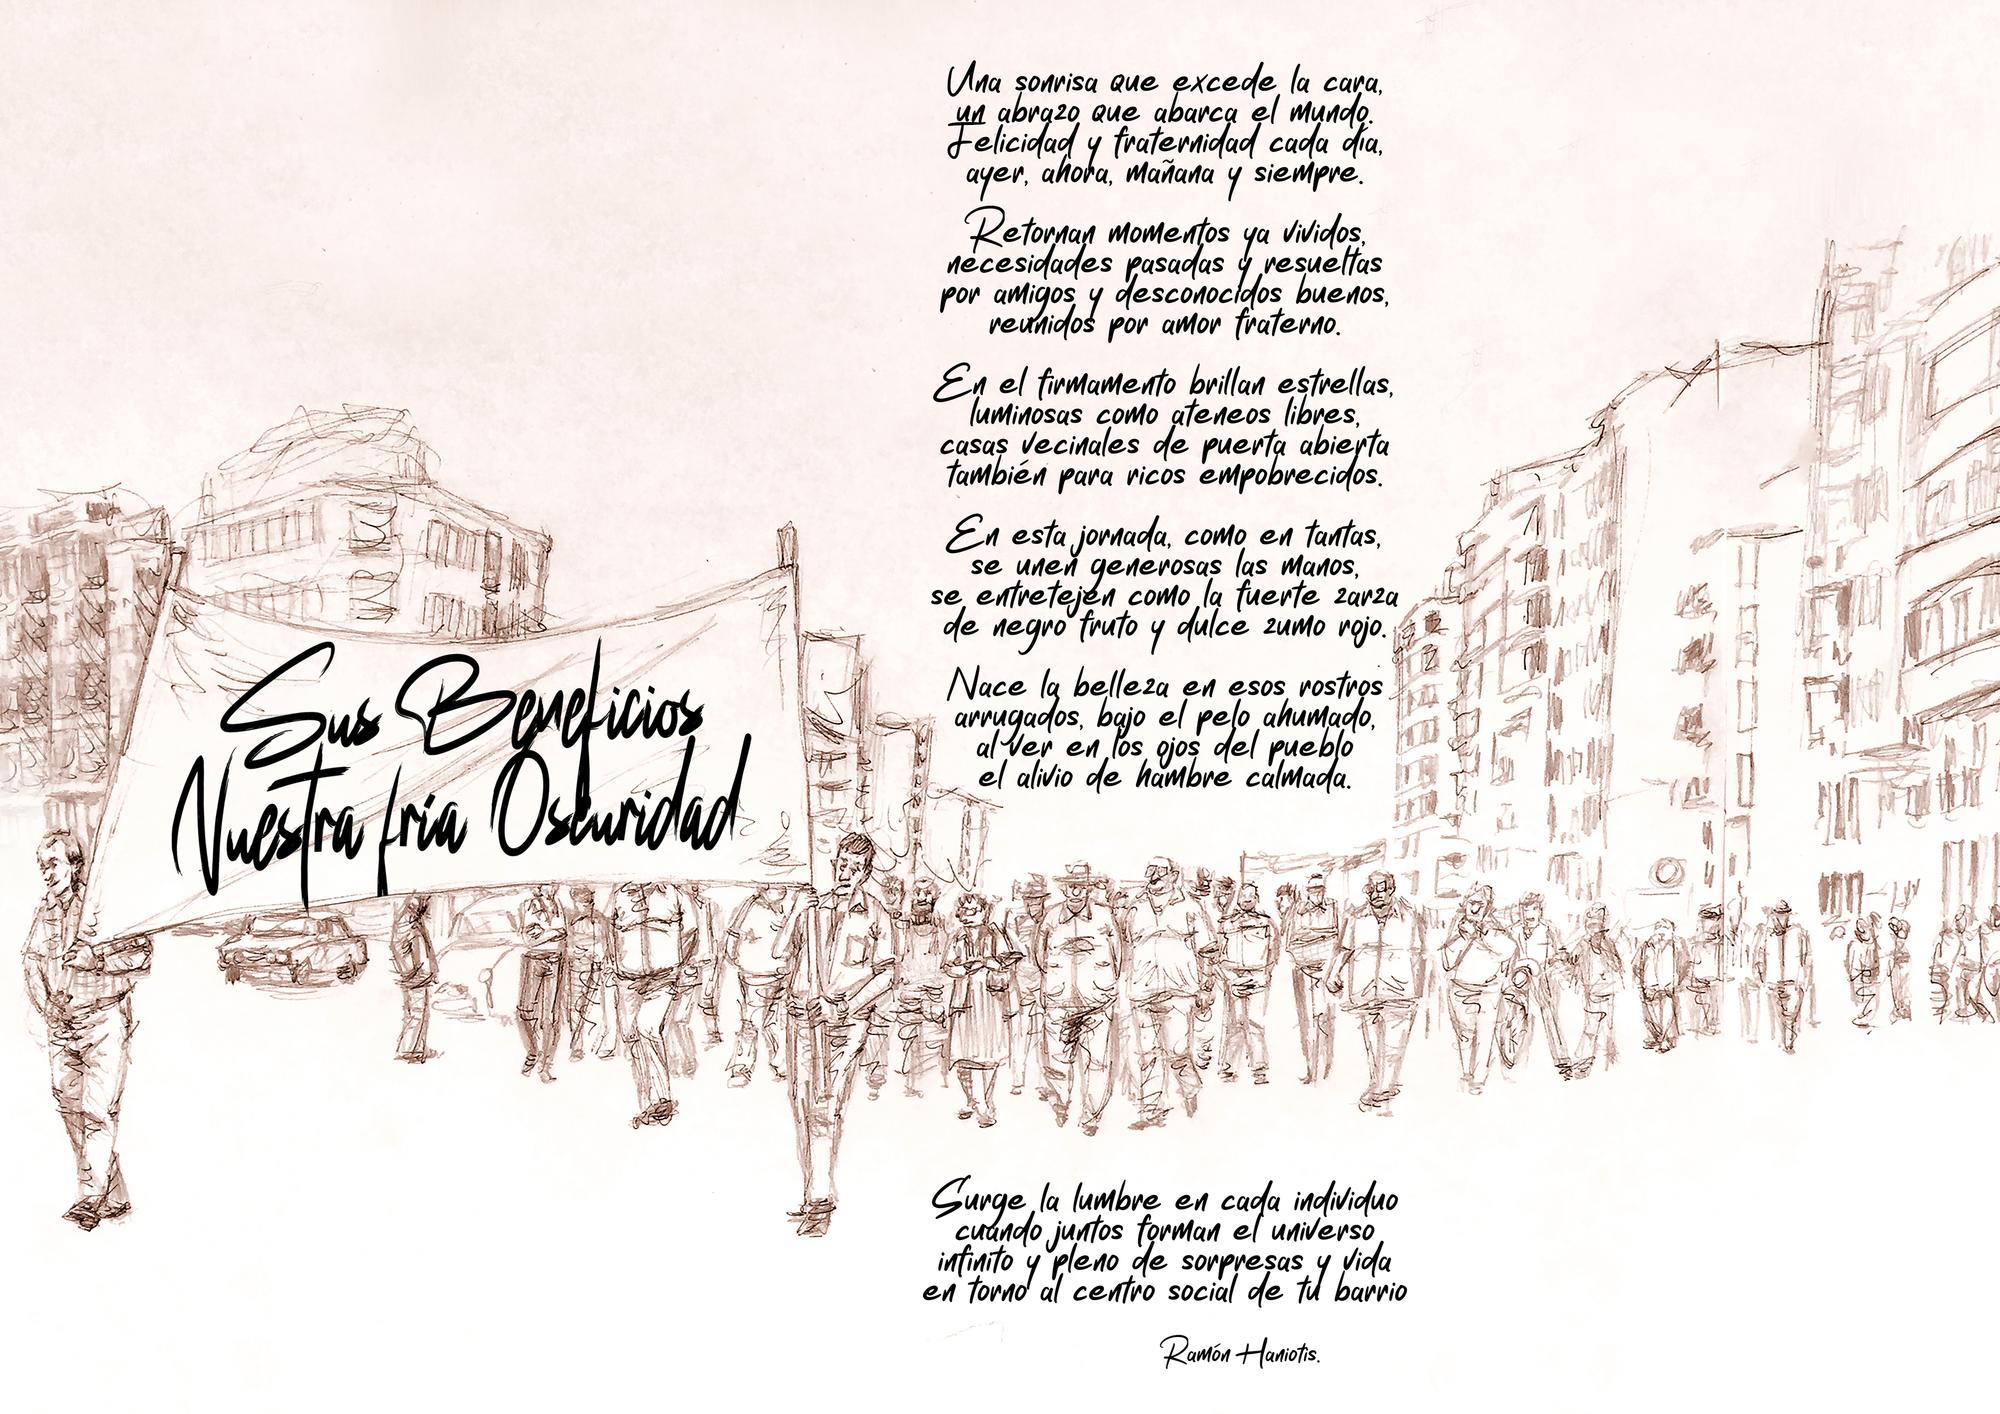 Sus Beneficios
Nuestra fría Oscuridad
Una sonrisa que excede la cara,
un abrazo que abarca el mundo.
Felicidad y fraternidad cada día,
ayer, ahora, mañana y siempre.
Retornan momentos ya vividos,
necesidades pasadas y resueltas
por amigos y desconocidos buenos,
reunidos por amor fraterno.
En el firmamento brillan estrellas,
luminosas como ateneos libres,
casas vecinales de puerta abierta
también para ricos empobrecidos.
En esta jornada, como en tantas,
se unen generosas las manos,
se entretejen como la fuerte zarza
de negro fruto y dulce zumo rojo.
Nace la belleza en esos rostros
arrugados, bajo el pelo ahumado,
al ver en los ojos del pueblo
el alivio de hambre calmada.
Surge la lumbre en cada individuo
cuando juntos forman el universo
infinito y pleno de sorpresas y vida
en torno al centro social de tu barrio
Ramón Haniotis.